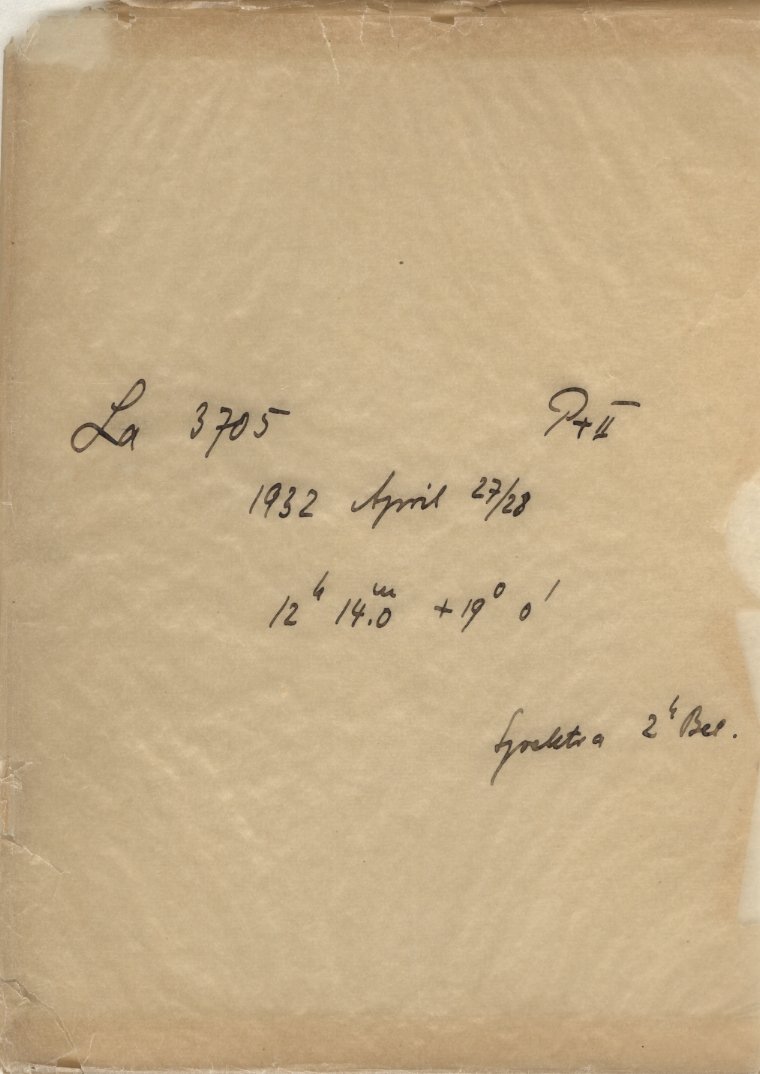 La 3705 P+II
1932 April 27/28
12ʰ 14.ᵐ0 +19⁰ 0′
Spektra 2ʰ Bel.